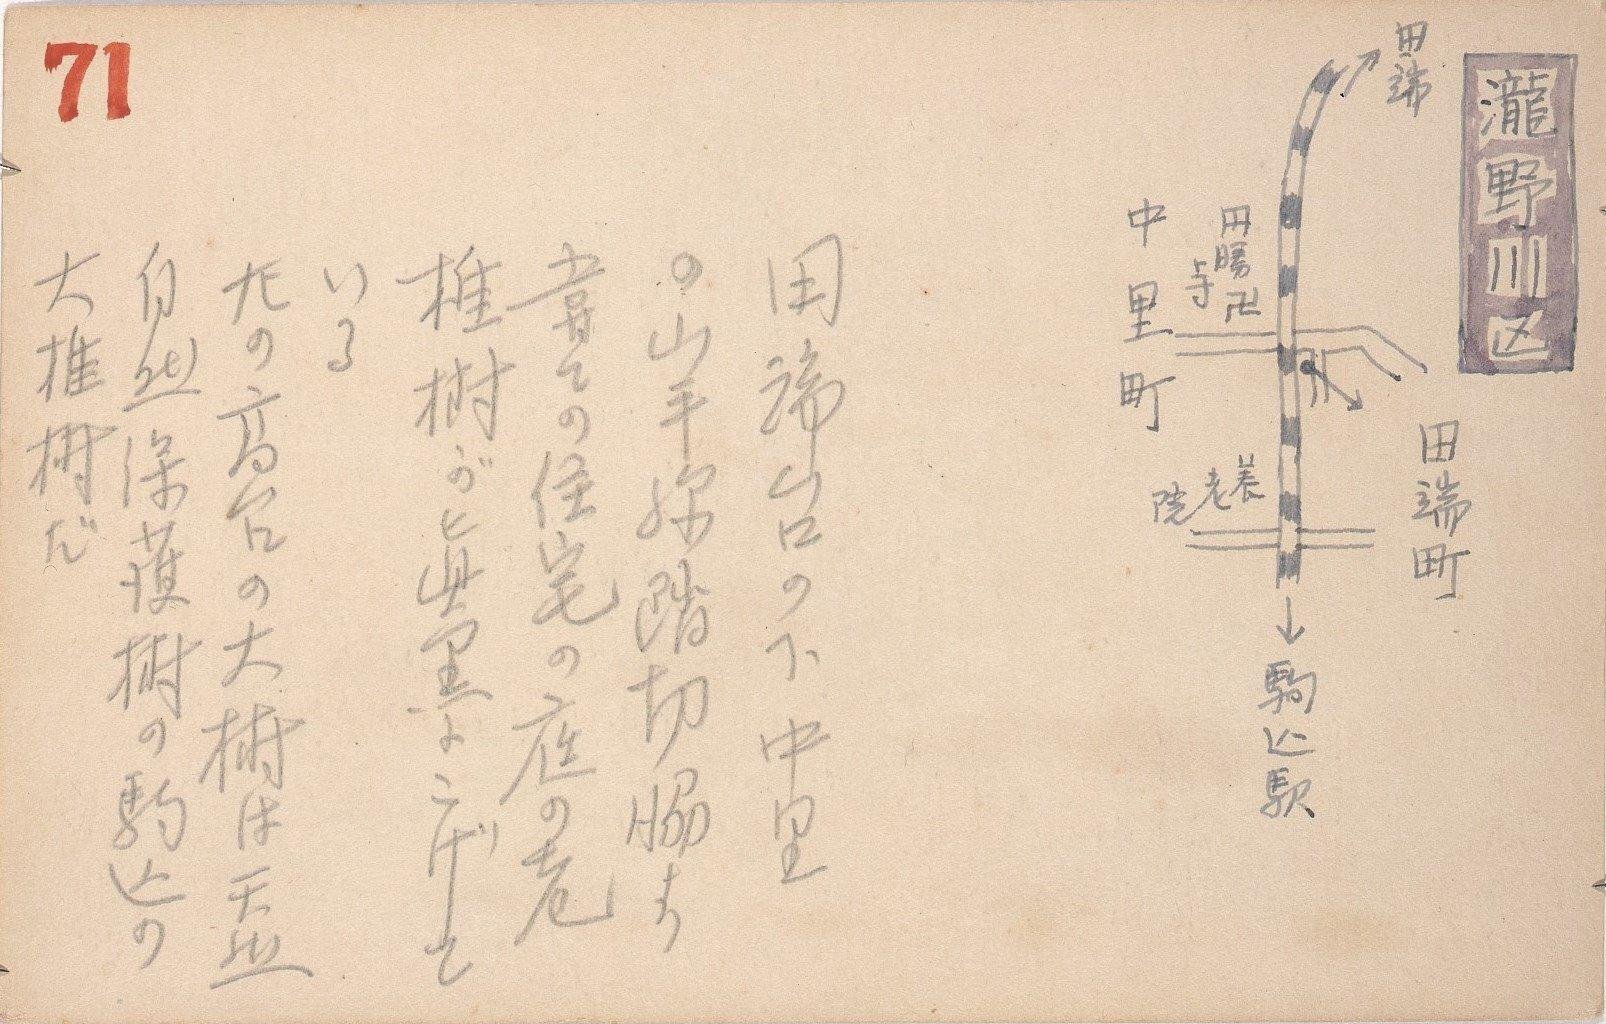 71
瀧野川区
田端
円勝寺
卍
中里町
田端町
養老院
駒込駅
田端台の下中里
の山手線踏切脇
嘗ての住宅の庭の老
椎樹が真黒にこげて
いる
左の高台の大樹は天然
自然保護樹の駒込の
大椎樹だ